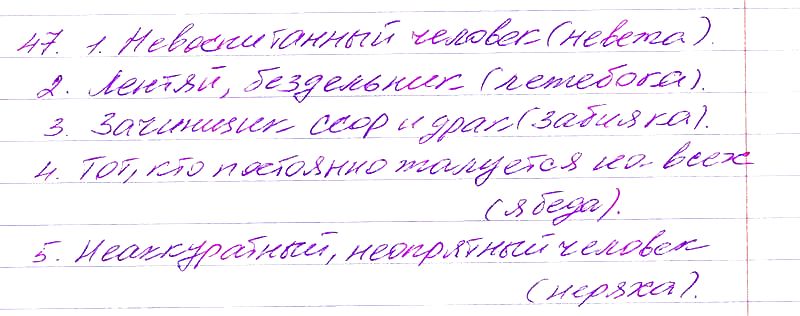 47. 1. Невоспитанный человек (невежа).
2. Лентяй, бездельник (лежебока).
3. Зачинщик ссор и драк (забияка).
4. Тот, кто постоянно жалуется на всех
(ябеда).
5. Неаккуратный, неопрятный человек
(неряха).